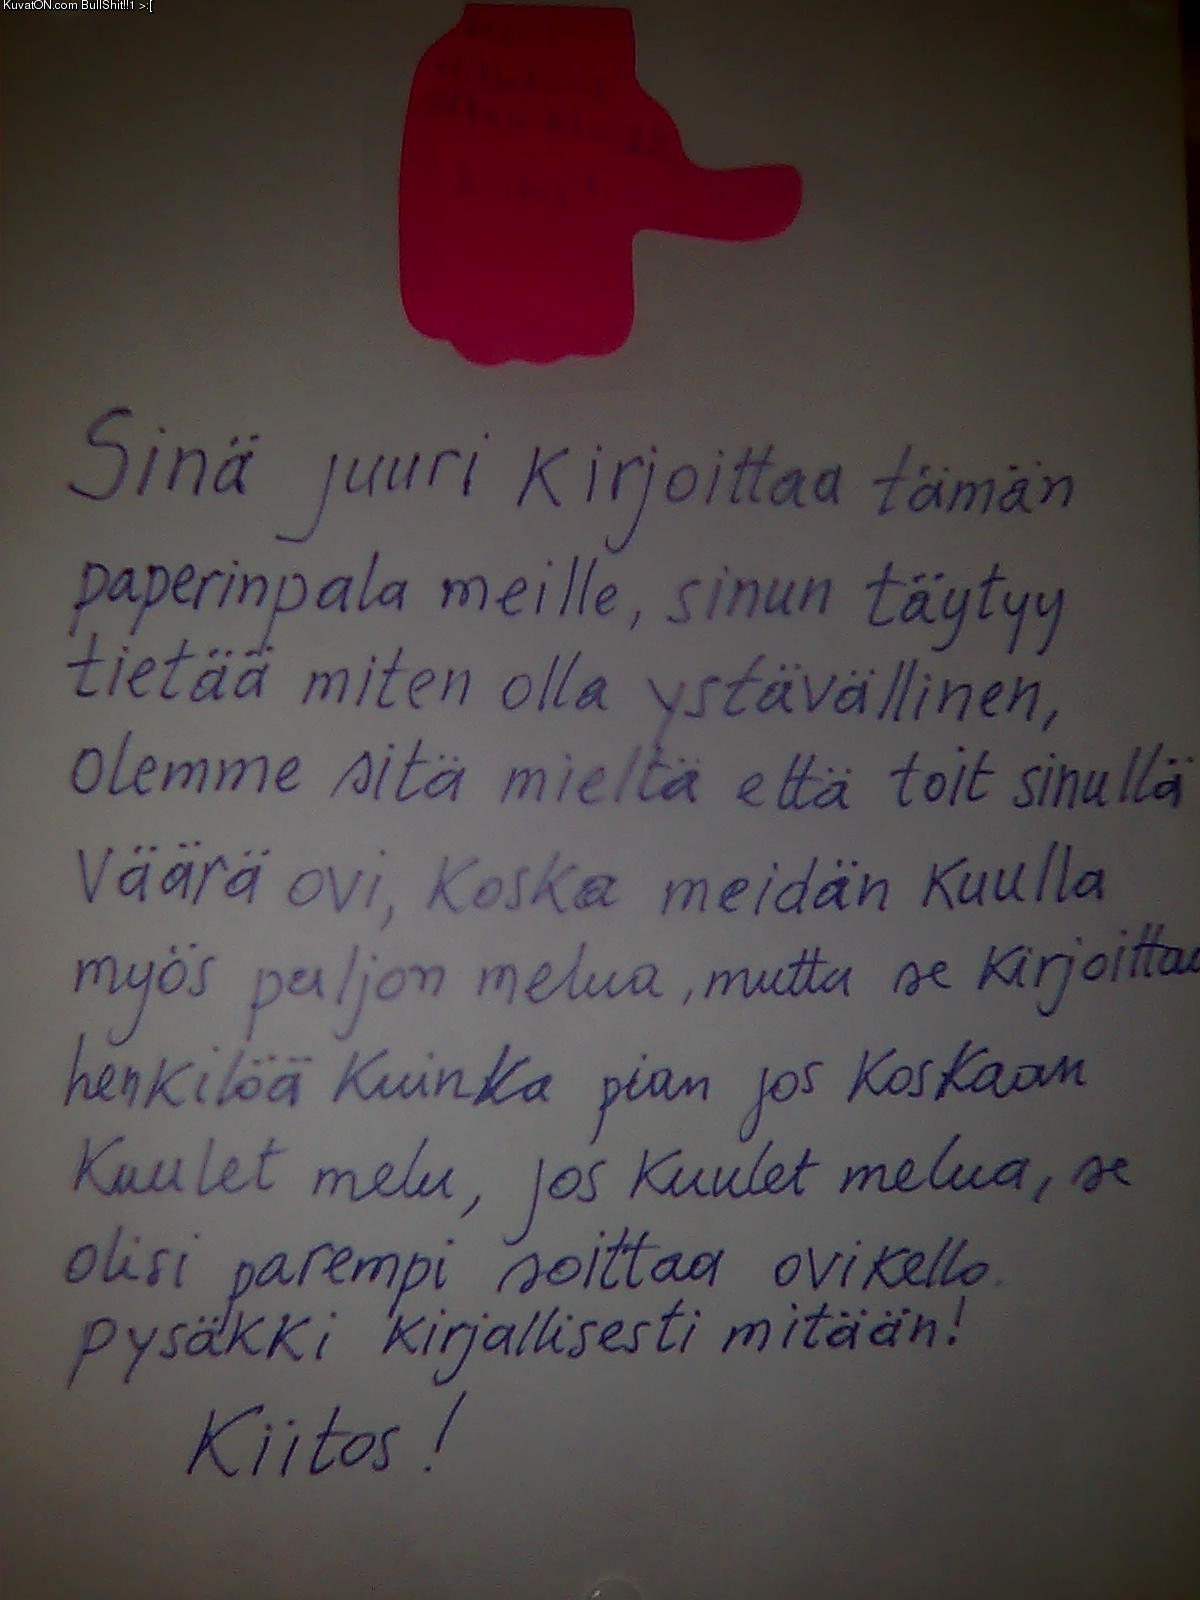 KuvatON.com BullShit!!1 >:[
Sinä juuri kirjoittaa tämän
paperinpala meille, sinun täytyy
tietää miten olla ystävällinen,
olemme sitä mieltä että toit sinullä
väärä ovi, koska meidän kuulla
myös paljon melua, mutta se kirjoittaa
henkilöä kuinka pian jos koskaan
kuulet melu, jos kuulet melua, se
olisi parempi soittaa ovikello.
pysäkki kirjallisesti mitään!
Kiitos!